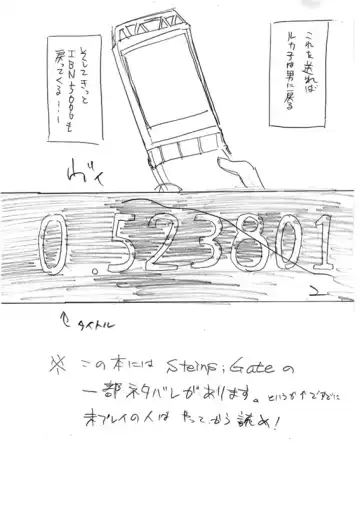 これを送れば
ルカ子は男に戻る
そしてきっと
IBN5096も
戻ってくる…!
ヴィ
0.523801
2
↑タイトル
※ この本には Steins;Gateの
一部ネタバレがあります。
未プレイの人は やってから読め!